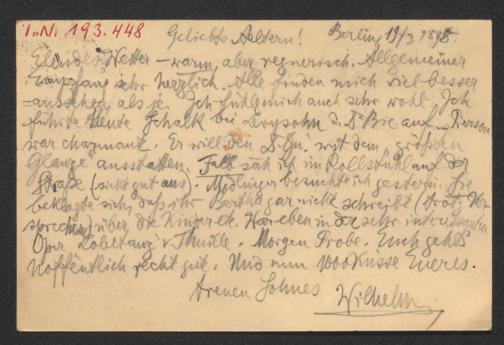 I.N. 193.448
Geliebte Aeltern! Berlin, 19/3 1898.
Elendes Wetter – warm, aber regnerisch. Allgemeiner
Empfang sehr herzlich. Alle finden mich viel besser
aussehen als je. Ich fühl mich auch sehr wohl. Ich
führte heute Schalk bei Levysohn u. Bie auf. Pierson
war charmant. Er will den mit dem „größten
Glanze" ausstatten. sah ich im Rollstuhl auf der
Straße (sieht gut aus). besuchte ich gestern. Sie
beklagte sich, daß ihr Bertha gar nicht schreibt (trotz Ver-
sprechen) über die Kinder etc. War eben in der sehr interessanten
Oper Lobetanz v. Thuille. Morgen Probe. Euch gehts
hoffentlich recht gut. Und nun 1000 Küsse Eueres
treuen Sohnes Wilhelm